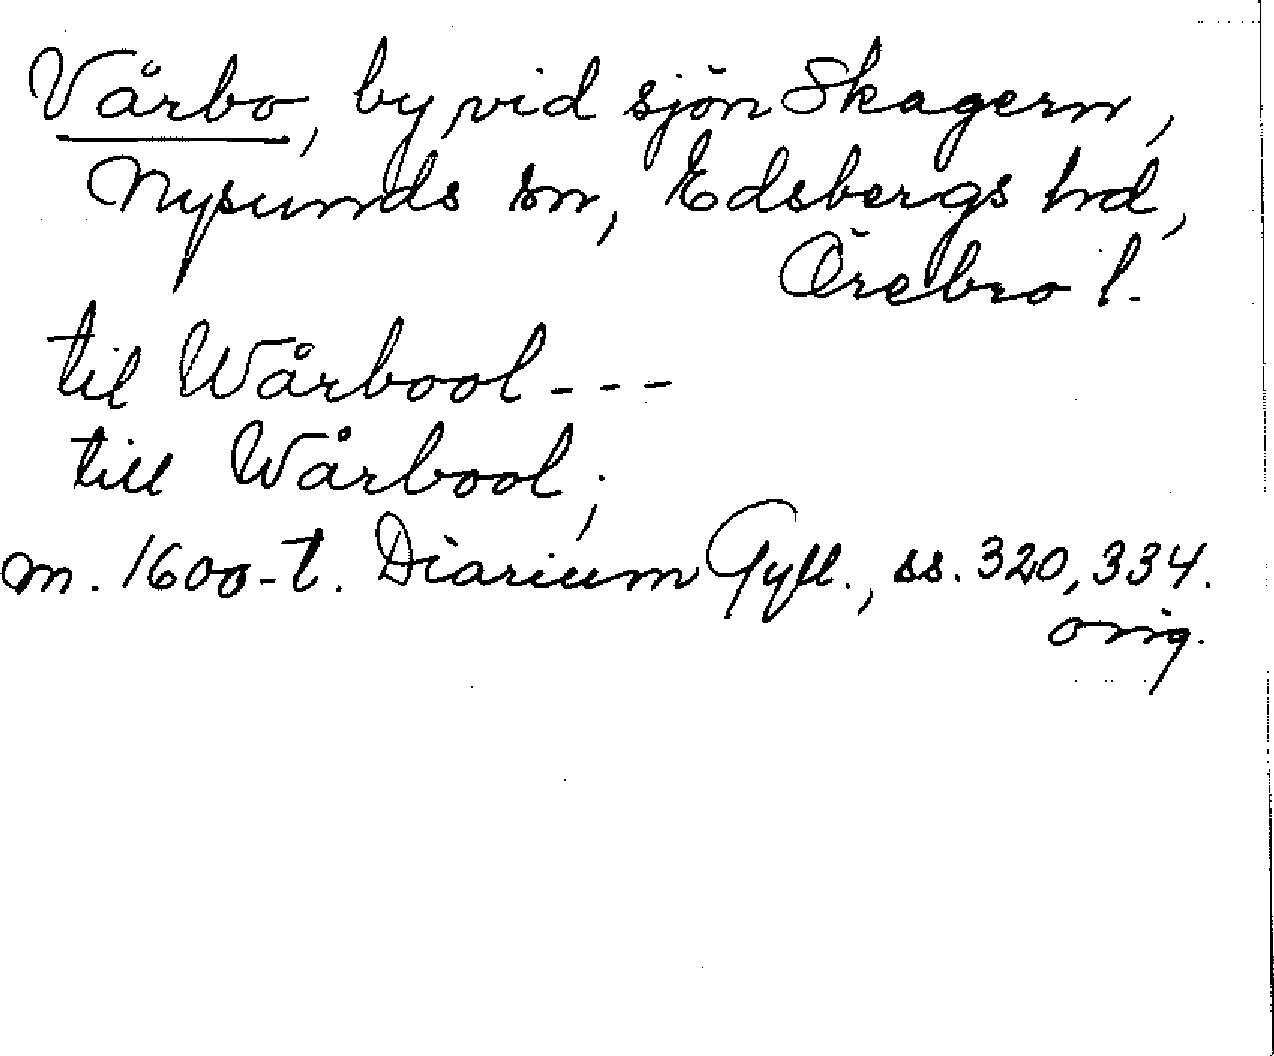 Vårbo, by vid sjön Skagern,
Nysunds sn, Edsbergs hd,
Örebro l.
til Wårbool - - -
till Wårbool;
m. 1600-t. Diarium Gyll., ss. 320, 334.
orig.